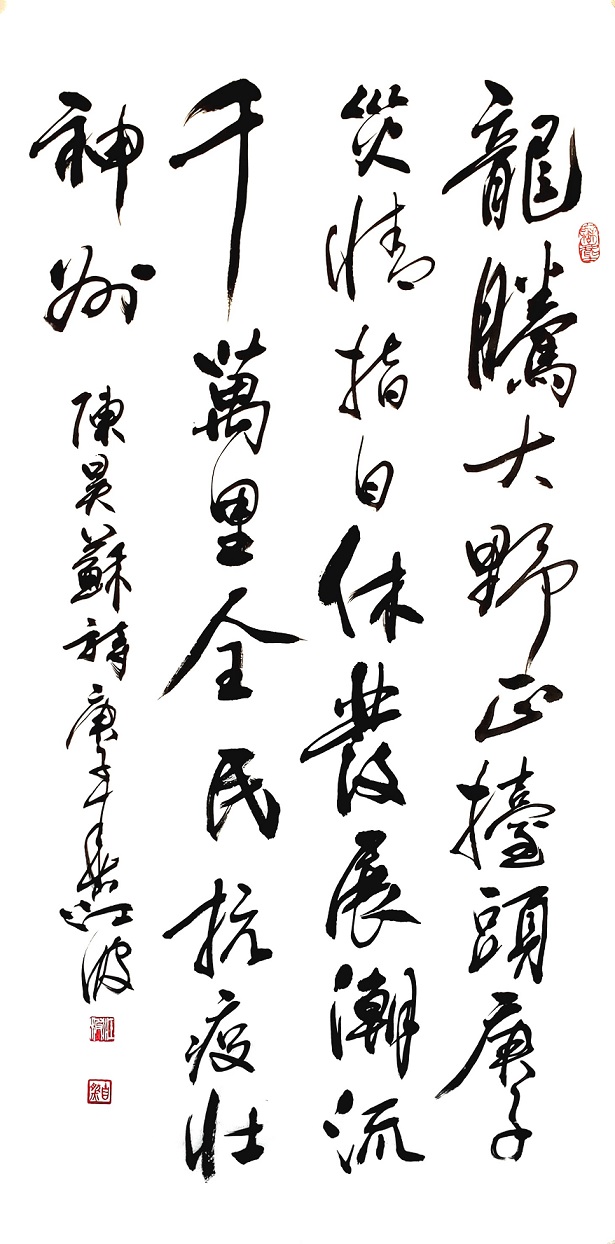 龍騰大野正擡頭庚子
災情指日休發展潮流
千萬里全民抗疫壯
神州 陳昊蘇詩庚子年春江波